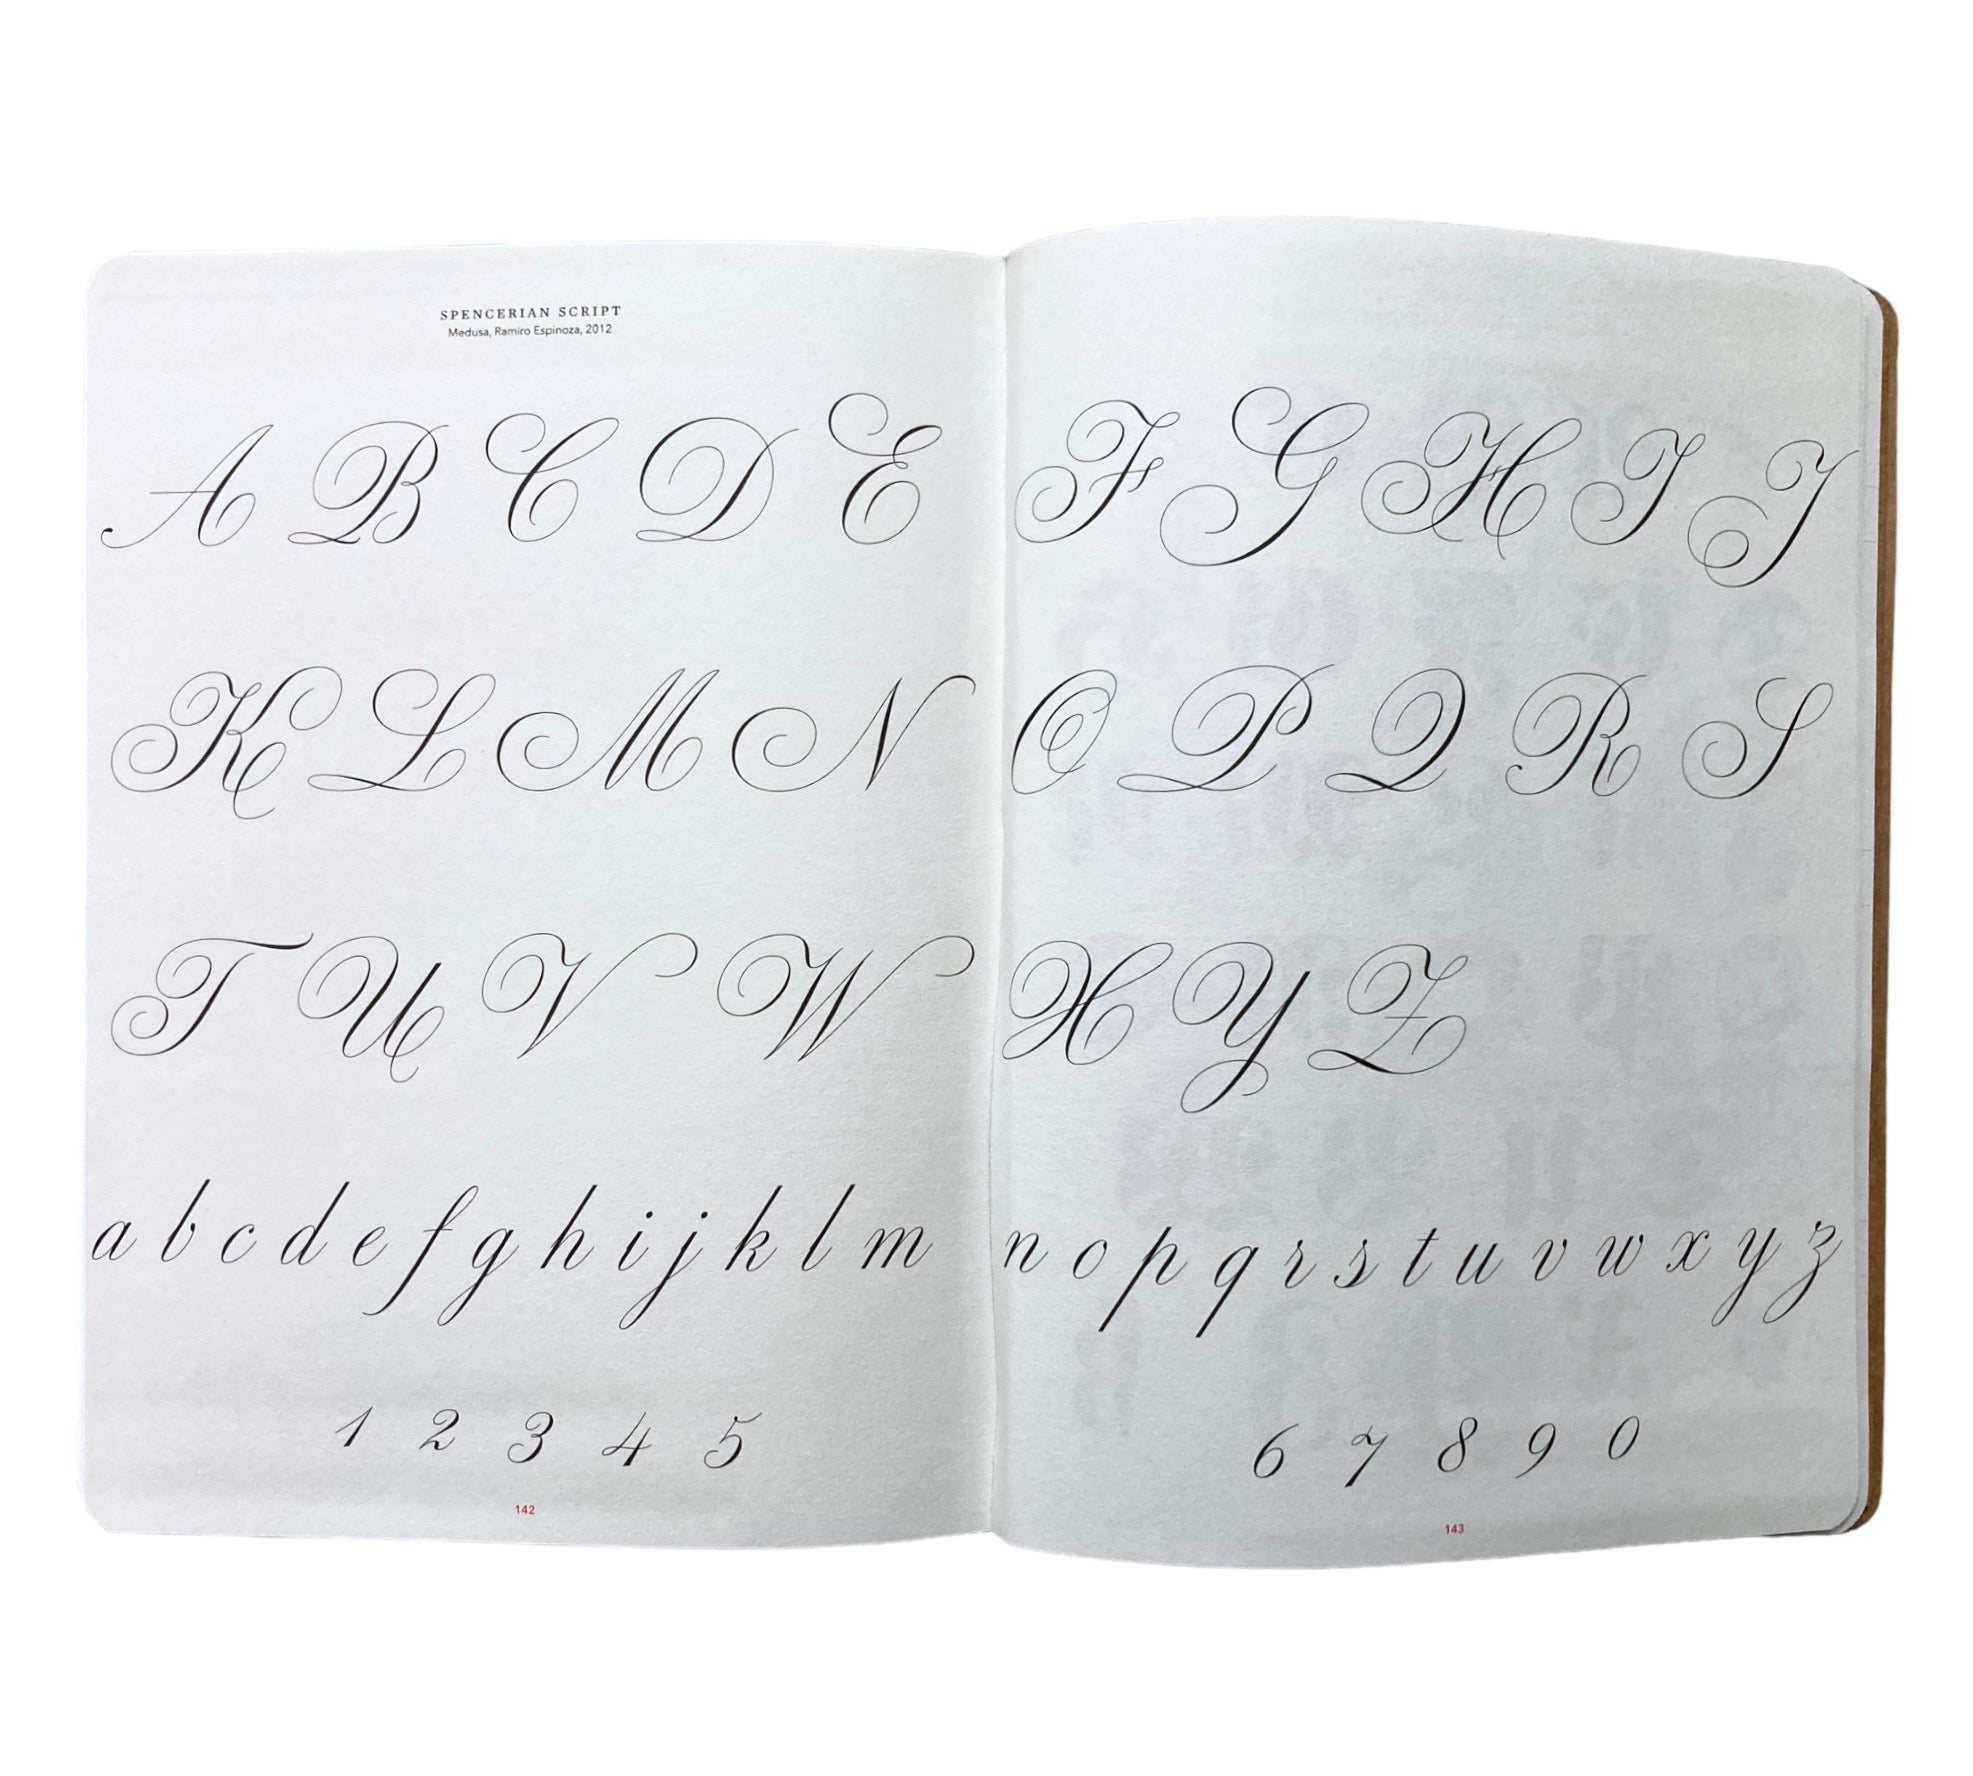 SPENCERIAN SCRIPT
Medusa, Ramiro Espinoza, 2012
A B C D E
K L M N
T U V W
a b c d e f g h i j k l m
1 2 3 4 5
142
F G H I J
O P Q R S
X Y Z
n o p q r s t u v w x y z
6 7 8 9 0
143